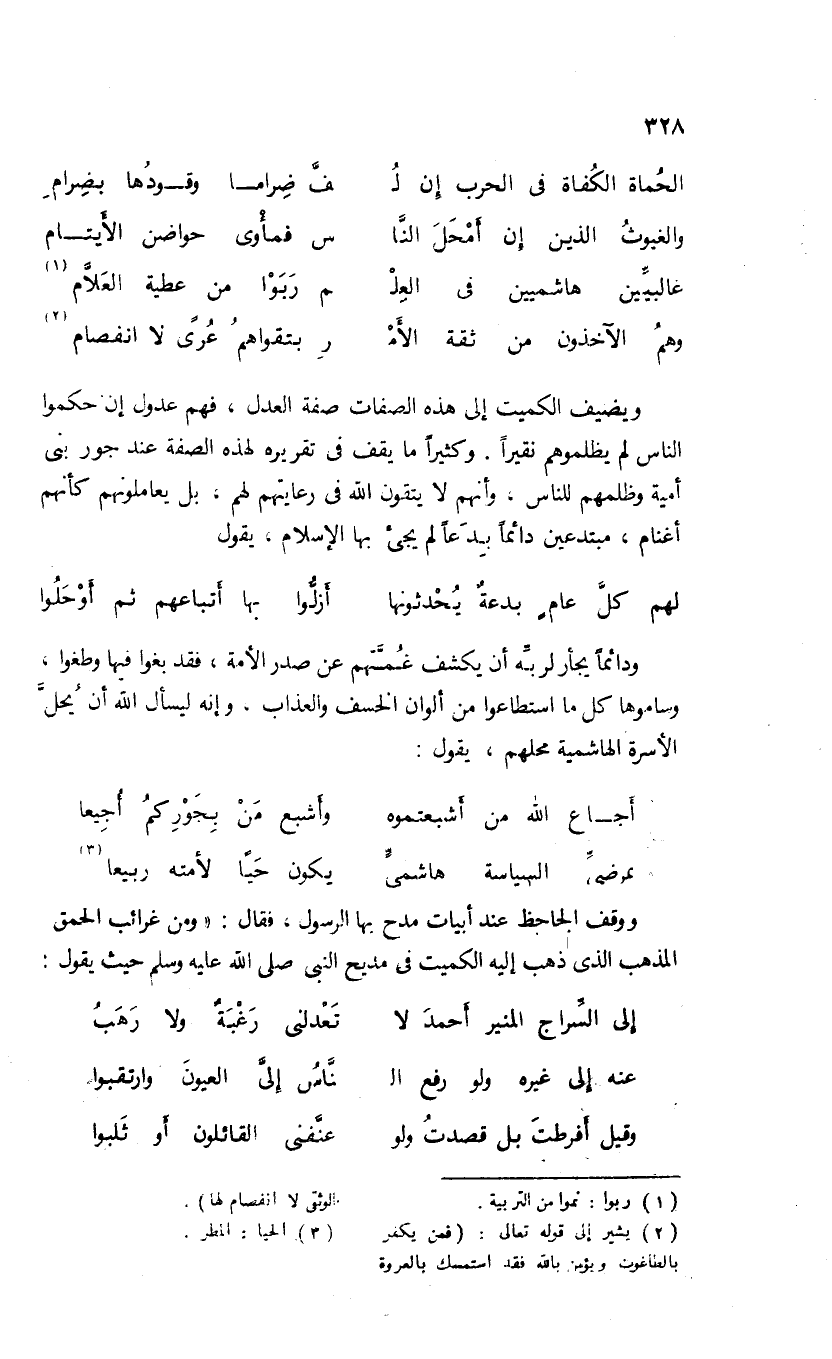 ٣٢٨
الحُماة الكُفاة فى الحرب إن لُـ ـفَّ ضِرامـــا وقــودُها بضِرامِ
والغيوثُ الذين إن أَمْحَلَ النَّا س فمأْوى حواضن الأَيتــام
غالبيِّين هاشميين فى العِلْـ ـم رَبَوْا من عطية العَلاَّم (١)
وهمُ الآخذون من ثقة الأَمْـ ـر بتقواهمُ عُرًى لا انفصام (٢)
ويضيف الكميت إلى هذه الصفات صفة العدل ، فهم عدول إن حكموا
الناس لم يظلموهم نقيراً . وكثيراً ما يقف فى تقريره لهذه الصفة عند جور بنى
أمية وظلمهم للناس ، وأنهم لا يتقون الله فى رعايتهم لهم ، بل يعاملونهم كأنهم
أغنام ، مبتدعين دائماً بِدَعاً لم يجئ بها الإسلام ، يقول
لهم كلَّ عامٍ بدعةٌ يُحْدثونها أَزلُّوا بها أَتباعهم ثم أَوْحَلُوا
ودائماً يجأر لربِّه أن يكشف غُمَّتهم عن صدر الأمة ، فقد بغوا فيها وطغوا ،
وساموها كل ما استطاعوا من ألوان الخسف والعذاب . وإنه ليسأل الله أن يُحلَّ
الأسرة الهاشمية محلهم ، يقول :
أَجــاع الله من أَشبعتموه وأَشبع مَنْ بِجَوْرِكمُ أُجيعا
بمرضىِّ السياسة هاشمىٍّ يكون حَيًا لأمته ربيعا (٣)
ووقف الجاحظ عند أبيات مدح بها الرسول ، فقال : « ومن غرائب الحمق
المذهب الذى ذهب إليه الكميت فى مديح النبى صلى الله عليه وسلم حيث يقول :
إلى السِّراج المنير أَحمدَ لا تَعْدلنى رَغْبَةٌ ولا رَهَبُ
عنه إلى غيره ولو رفع الـ ـنَّاسُ إلىَّ العيونَ وارتقبوا
وقيل أَفرطتَ بل قصدتُ ولو عنَّفنى القائلون أَو ثَلبوا
(١) ربوا : نموا من التربية .
(٢) يشير إلى قوله تعالى : (فمن يكفر
بالطاغوت ويؤمن بالله فقد استمسك بالعروة
الوثقى لا انفصام لها) .
(٣) الحيا : المطر .